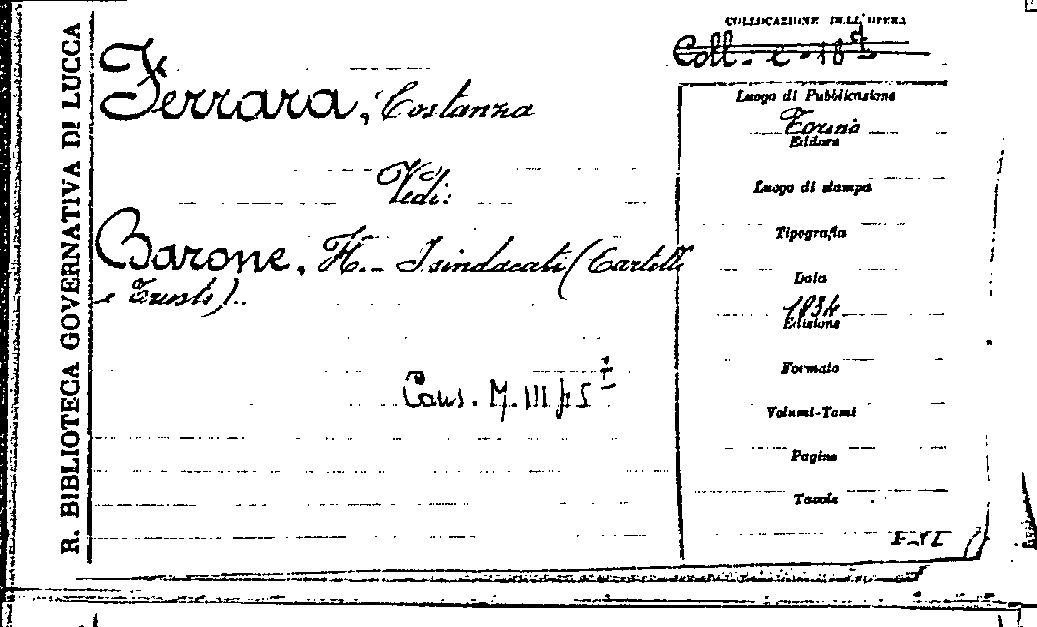 R. BIBLIOTECA GOVERNATIVA DI LUCCA
COLLOCAZIONE DELL'OPERA
Coll. C-18
Ferrara, Costanza
Vedi:
Barone, H. - I sindacati (Cartelli
e Trusts).
Cons. M. III
Luogo di Pubblicazione
Torino
Editore
Luogo di stampa
Tipografia
Data
1934
Edizione
Formato
Volumi-Tomi
Pagine
Tavole